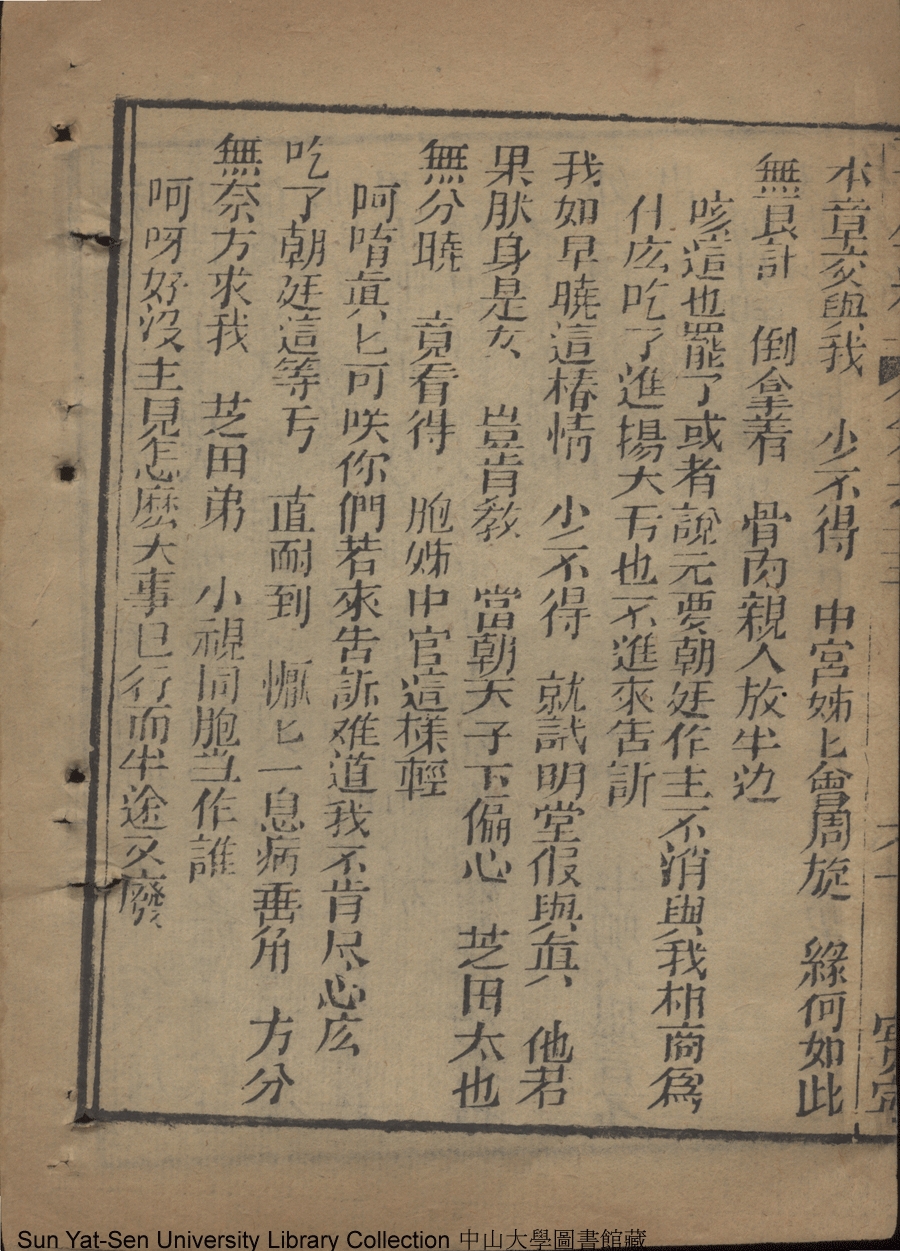 本章交與我　少不得　中宮姊匕會周旋　緣何如此
無良計　倒拿着　骨肉親人放半边
咳這也罷了或者說元要朝廷作主不消與我相商爲
什庅吃了進揚大亐也不進來告訴
我如早曉這樁情　少不得　就試明堂假與眞　他君
果肰身是女　豈肯教　當朝天子下偏心　芝田太也
無分曉　竟看得　胞姊中宮這様輕
呵唷眞匕可咲你們若來告訴难道我不肯尽心庅
吃了朝廷這等亐　直耐到　懨匕一息病垂角　方分
無奈方求我　芝田弟　小視同胞当作誰
呵呀好沒主見怎麽大事已行而半途又廢
Sun Yat-Sen University Library Collection 中山大學圖書館藏